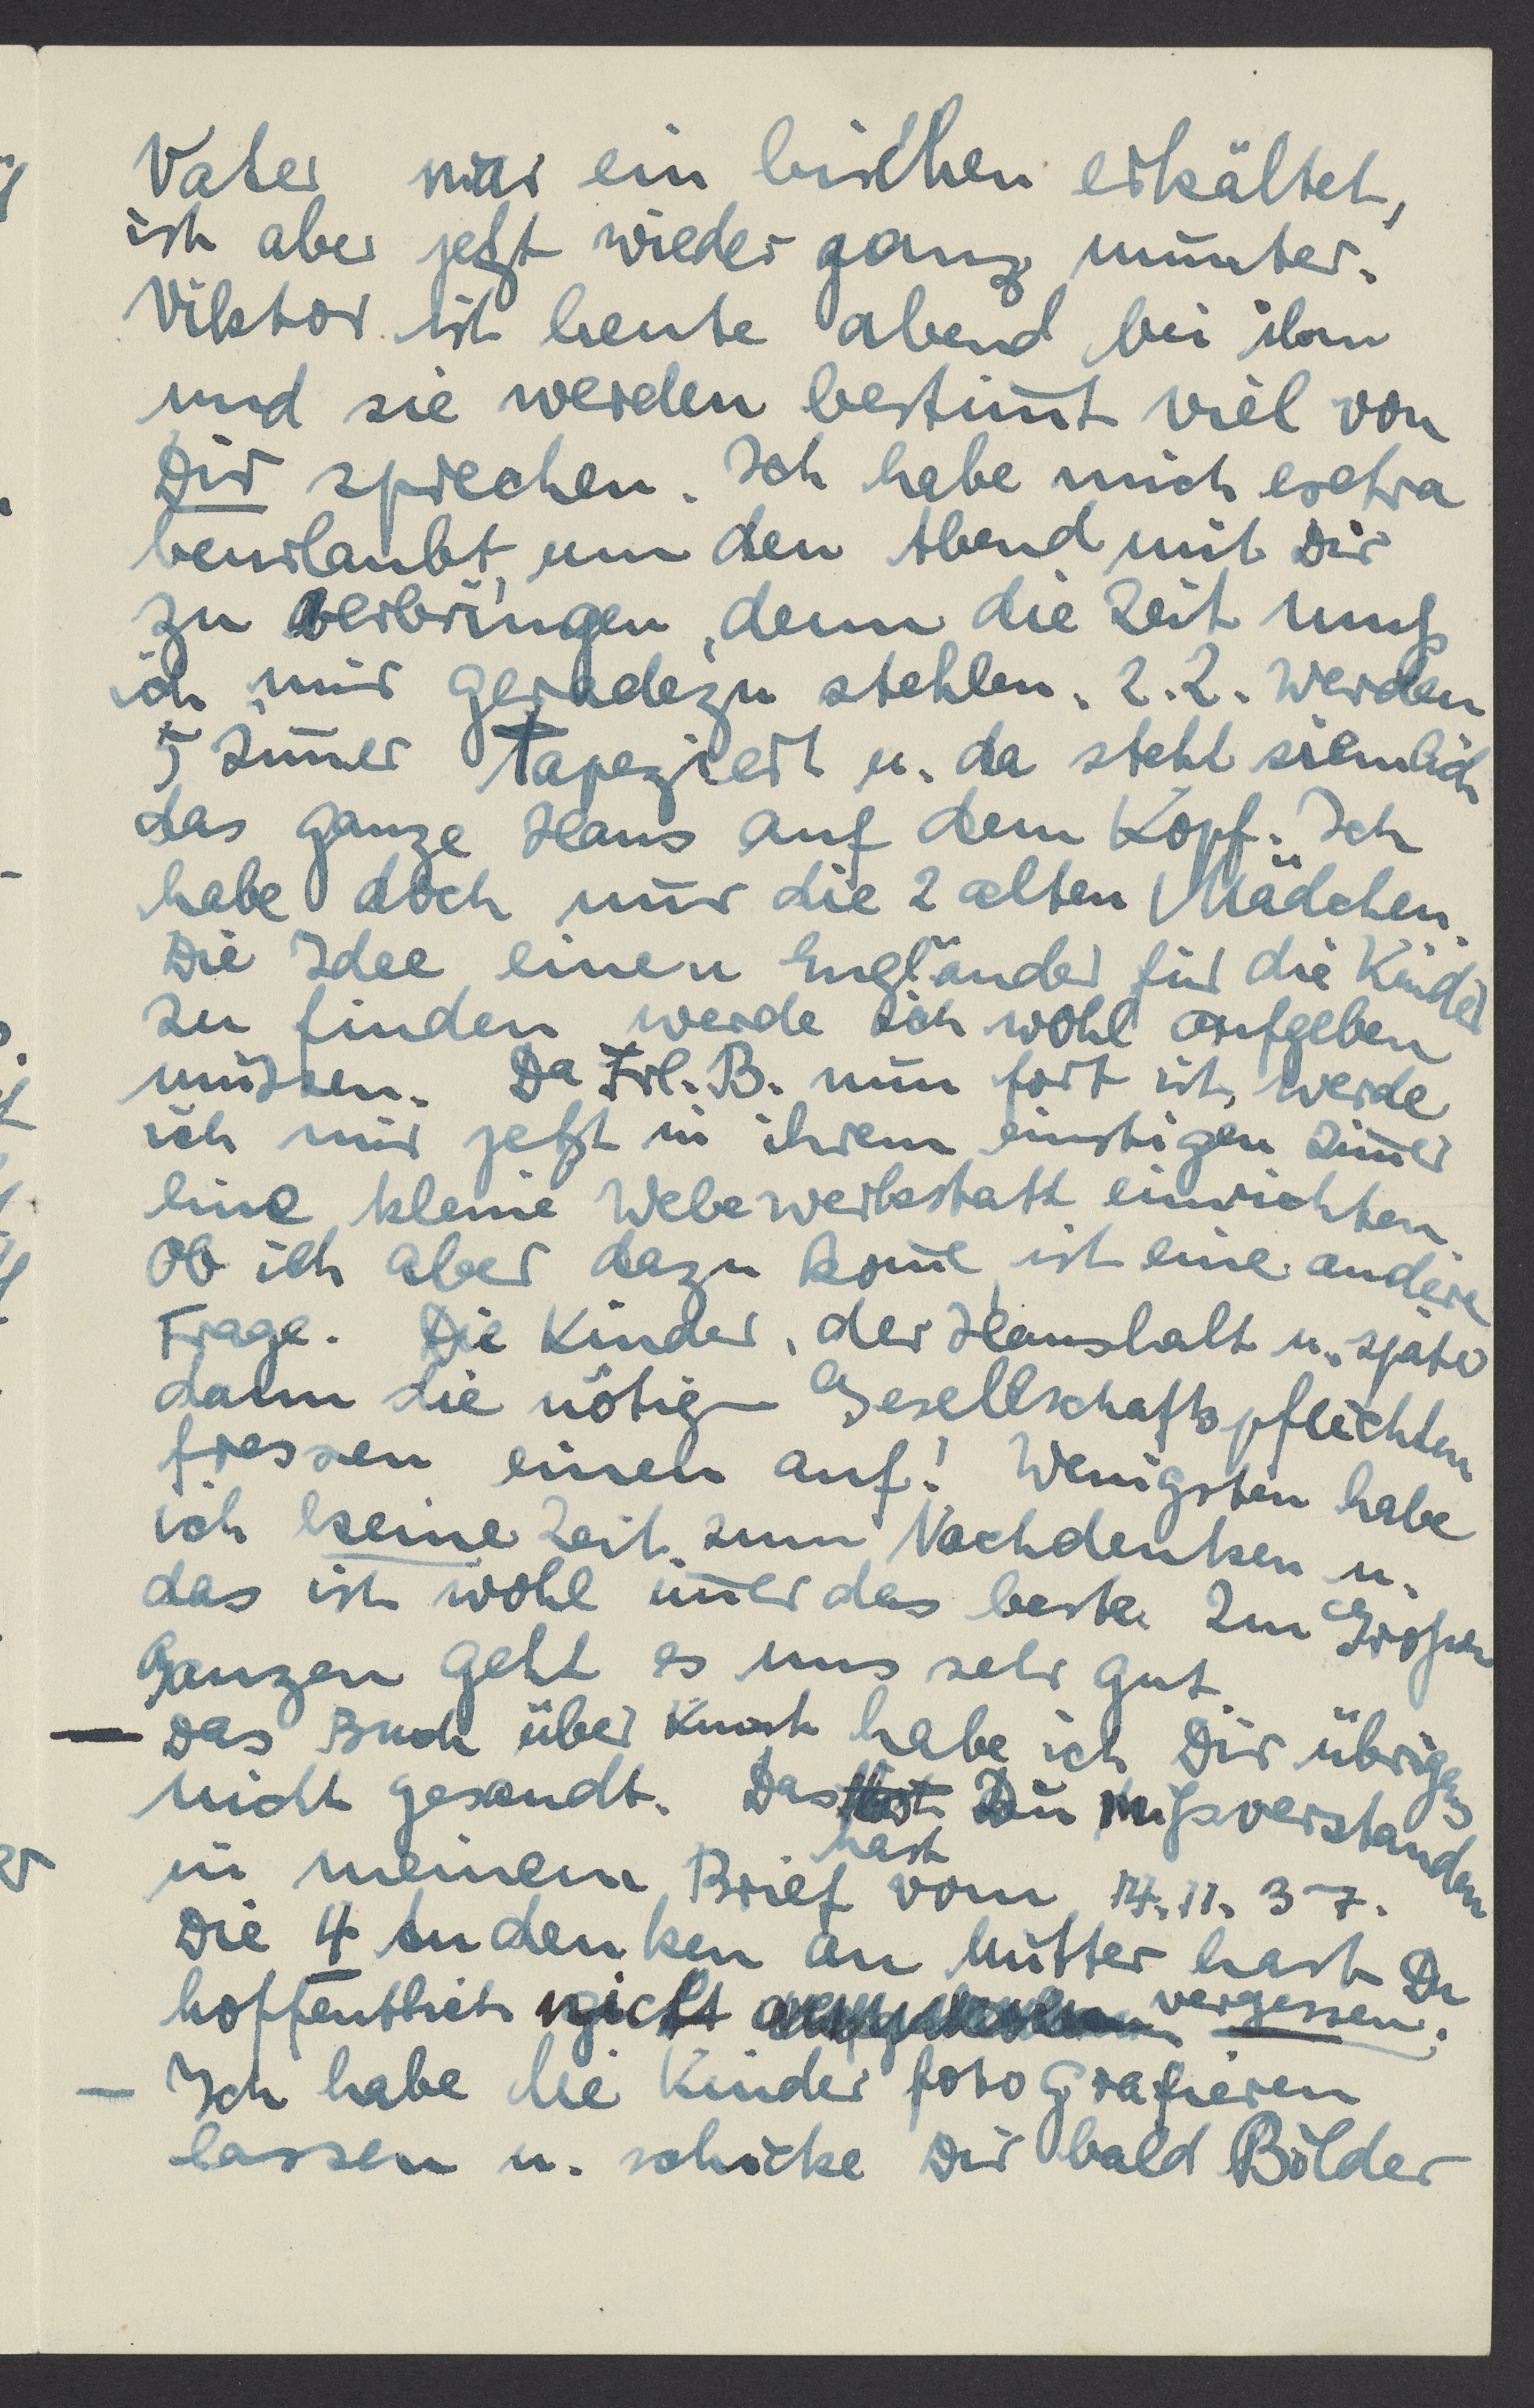 Vater war ein bischen erkältet,
ist aber jetzt wieder ganz munter.
Viktor ist heute abend bei ihm
und sie werden bestim̅t viel von
Dir sprechen. Ich habe mich extra
beurlaubt, um den Abend mit Dir
zu verbringen, denn die Zeit muß
ich mir geradezu stehlen. Z. Z. werden
5 Zim̅er tapeziert u. da steht ziemlich
das ganze Haus auf dem Kopf. Ich
habe doch nur die 2 alten Mädchen.
Die Idee einen Engländer für die Kinder
zu finden werde ich wohl aufgeben
müssen. Da Frl. B. nun fort ist, werde
ich mir jetzt in ihrem einstigen Zim̅er
eine kleine Webewerkstatt einrichten.
Ob ich aber dazu kom̅e, ist eine andere
Frage. Die Kinder, der Haushalt u. später
dann die nötig Gesellschaftspflichten
fressen einen auf! Wenigsten habe
ich keine Zeit zum Nachdenken u.
das ist wohl im̅er das beste. Im Großen
Ganzen geht es uns sehr gut.
— Das Buch über Kunst habe ich Dir übrigens
nicht gesandt. Das Du mißverstanden
hast
in meinem Brief vom 14.11.37.
Die 4 Andenken an Mutter hast Du
hoffentlich nicht vergessen.
— Ich habe die Kinder fotografieren
lassen u. schicke Dir bald Bilder